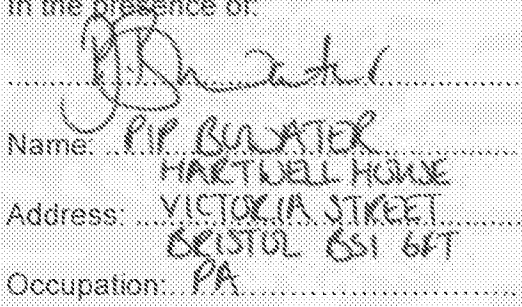 In the presence of:
Name: PIP BULVATER
HARTWELL HOUSE
Address: VICTORIA STREET
BRISTOL BS1 6FT
Occupation: PA